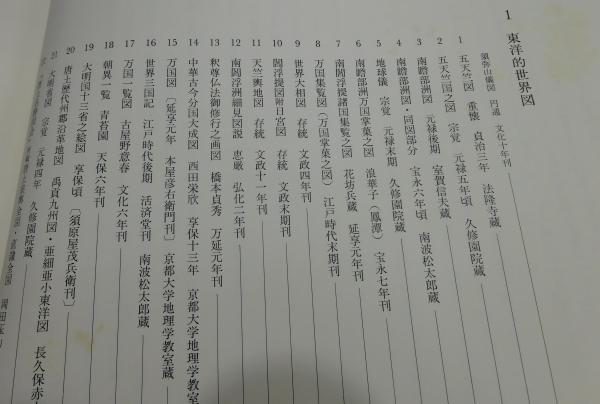 1 東洋的世界図
須弥山儀図 円通 文化十年刊
1 五天竺図 重懐 貞治三年 法隆寺蔵
2 五天竺国之図 宗覚 元禄五年頃 久修園院蔵
3 南瞻部洲図 元禄後期 室賀信夫蔵
4 南瞻部洲図・同図部分 宝永六年頃 南波松太郎蔵
5 地球儀 宗覚 元禄末期 久修園院蔵
6 南瞻部洲万国掌菓之図 浪華子(鳳潭) 宝永七年刊
7 南閻浮提諸国集覧之図 花坊兵蔵 延享元年刊
8 万国集覧図(万国掌菓之図) 江戸時代末期刊
9 世界大相図 存統 文政四年刊
10 閻浮提図附日宮図 存統 文政末期刊
11 天竺輿地図 存統 文政十一年刊
12 南閻浮洲細見図説 恵厳 弘化二年刊
13 釈尊仏法御修行之画図 橋本貞秀 万延元年刊
14 中華古今分国大成図 西田栄欣 享保十三年 京都大学地理学教室
15 万国図 〔延享元年 本屋彦右衛門刊〕 京都大学地理学教室蔵
16 世界三国記 江戸時代後期 活済堂刊 南波松太郎蔵
17 万国一覧図 古屋野意春 文化六年刊
18 朝異一覧 青苔園 天保六年刊
19 大明国十三省之絵図 享保頃 〔須原屋茂兵衛刊〕
20 唐土歴代州郡沿革地図 禹貢九州図・亜細亜小東洋図 長久保赤
21 大明省図 宗覚 元禄四年 久修園院蔵